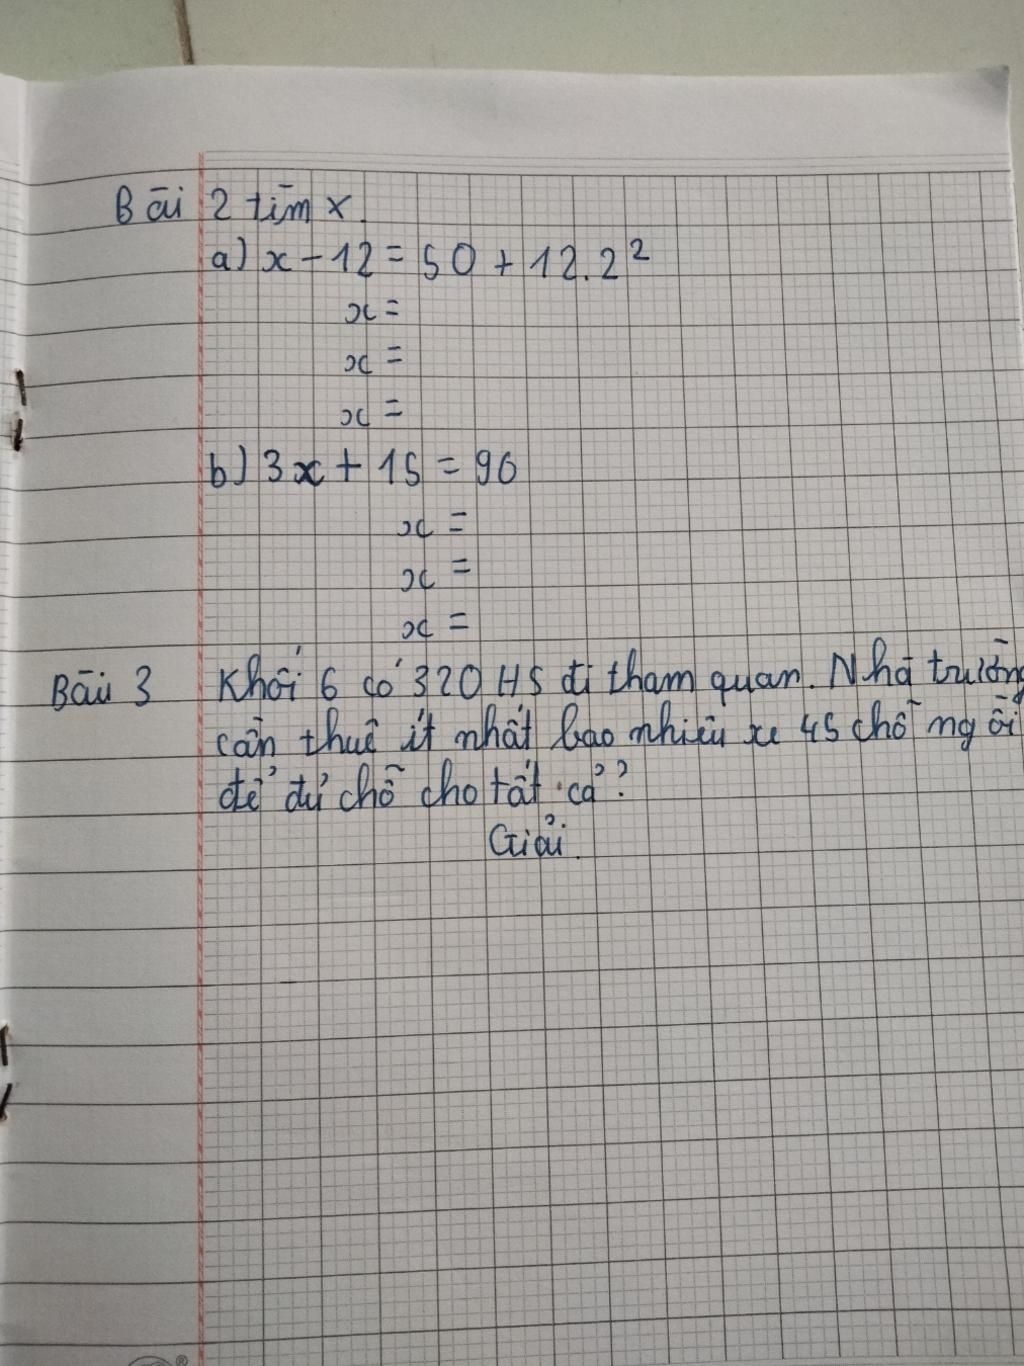 Bài 2 tìm x.
a) x - 12 = 50 + 12.2²
x =
x =
x =
b) 3x + 15 = 90
x =
x =
x =
Bài 3 Khối 6 có 320 HS đi tham quan. Nhà trường
cần thuê ít nhất bao nhiêu xe 45 chỗ ngồi
để đủ chỗ cho tất cả?
Giải.